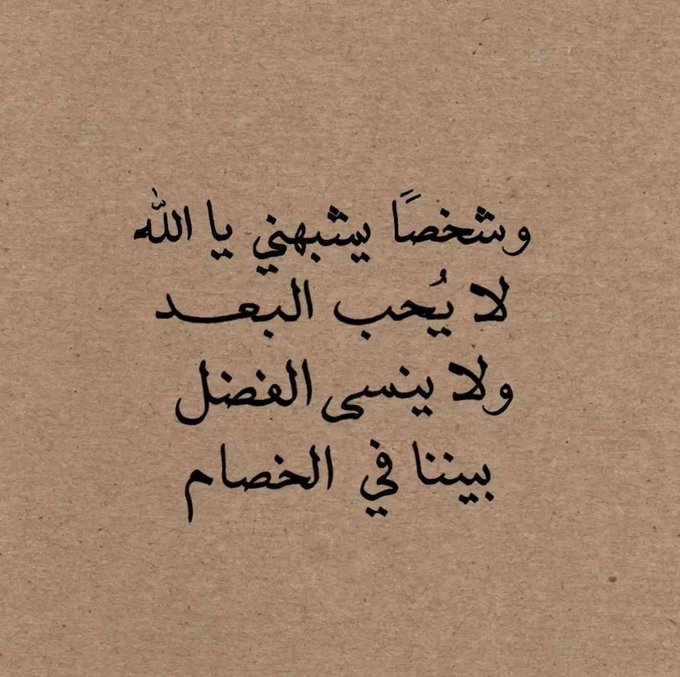 وشخصًا يشبهني يا الله
لا يُحب البعد
ولا ينسى الفضل
بيننا في الخصام